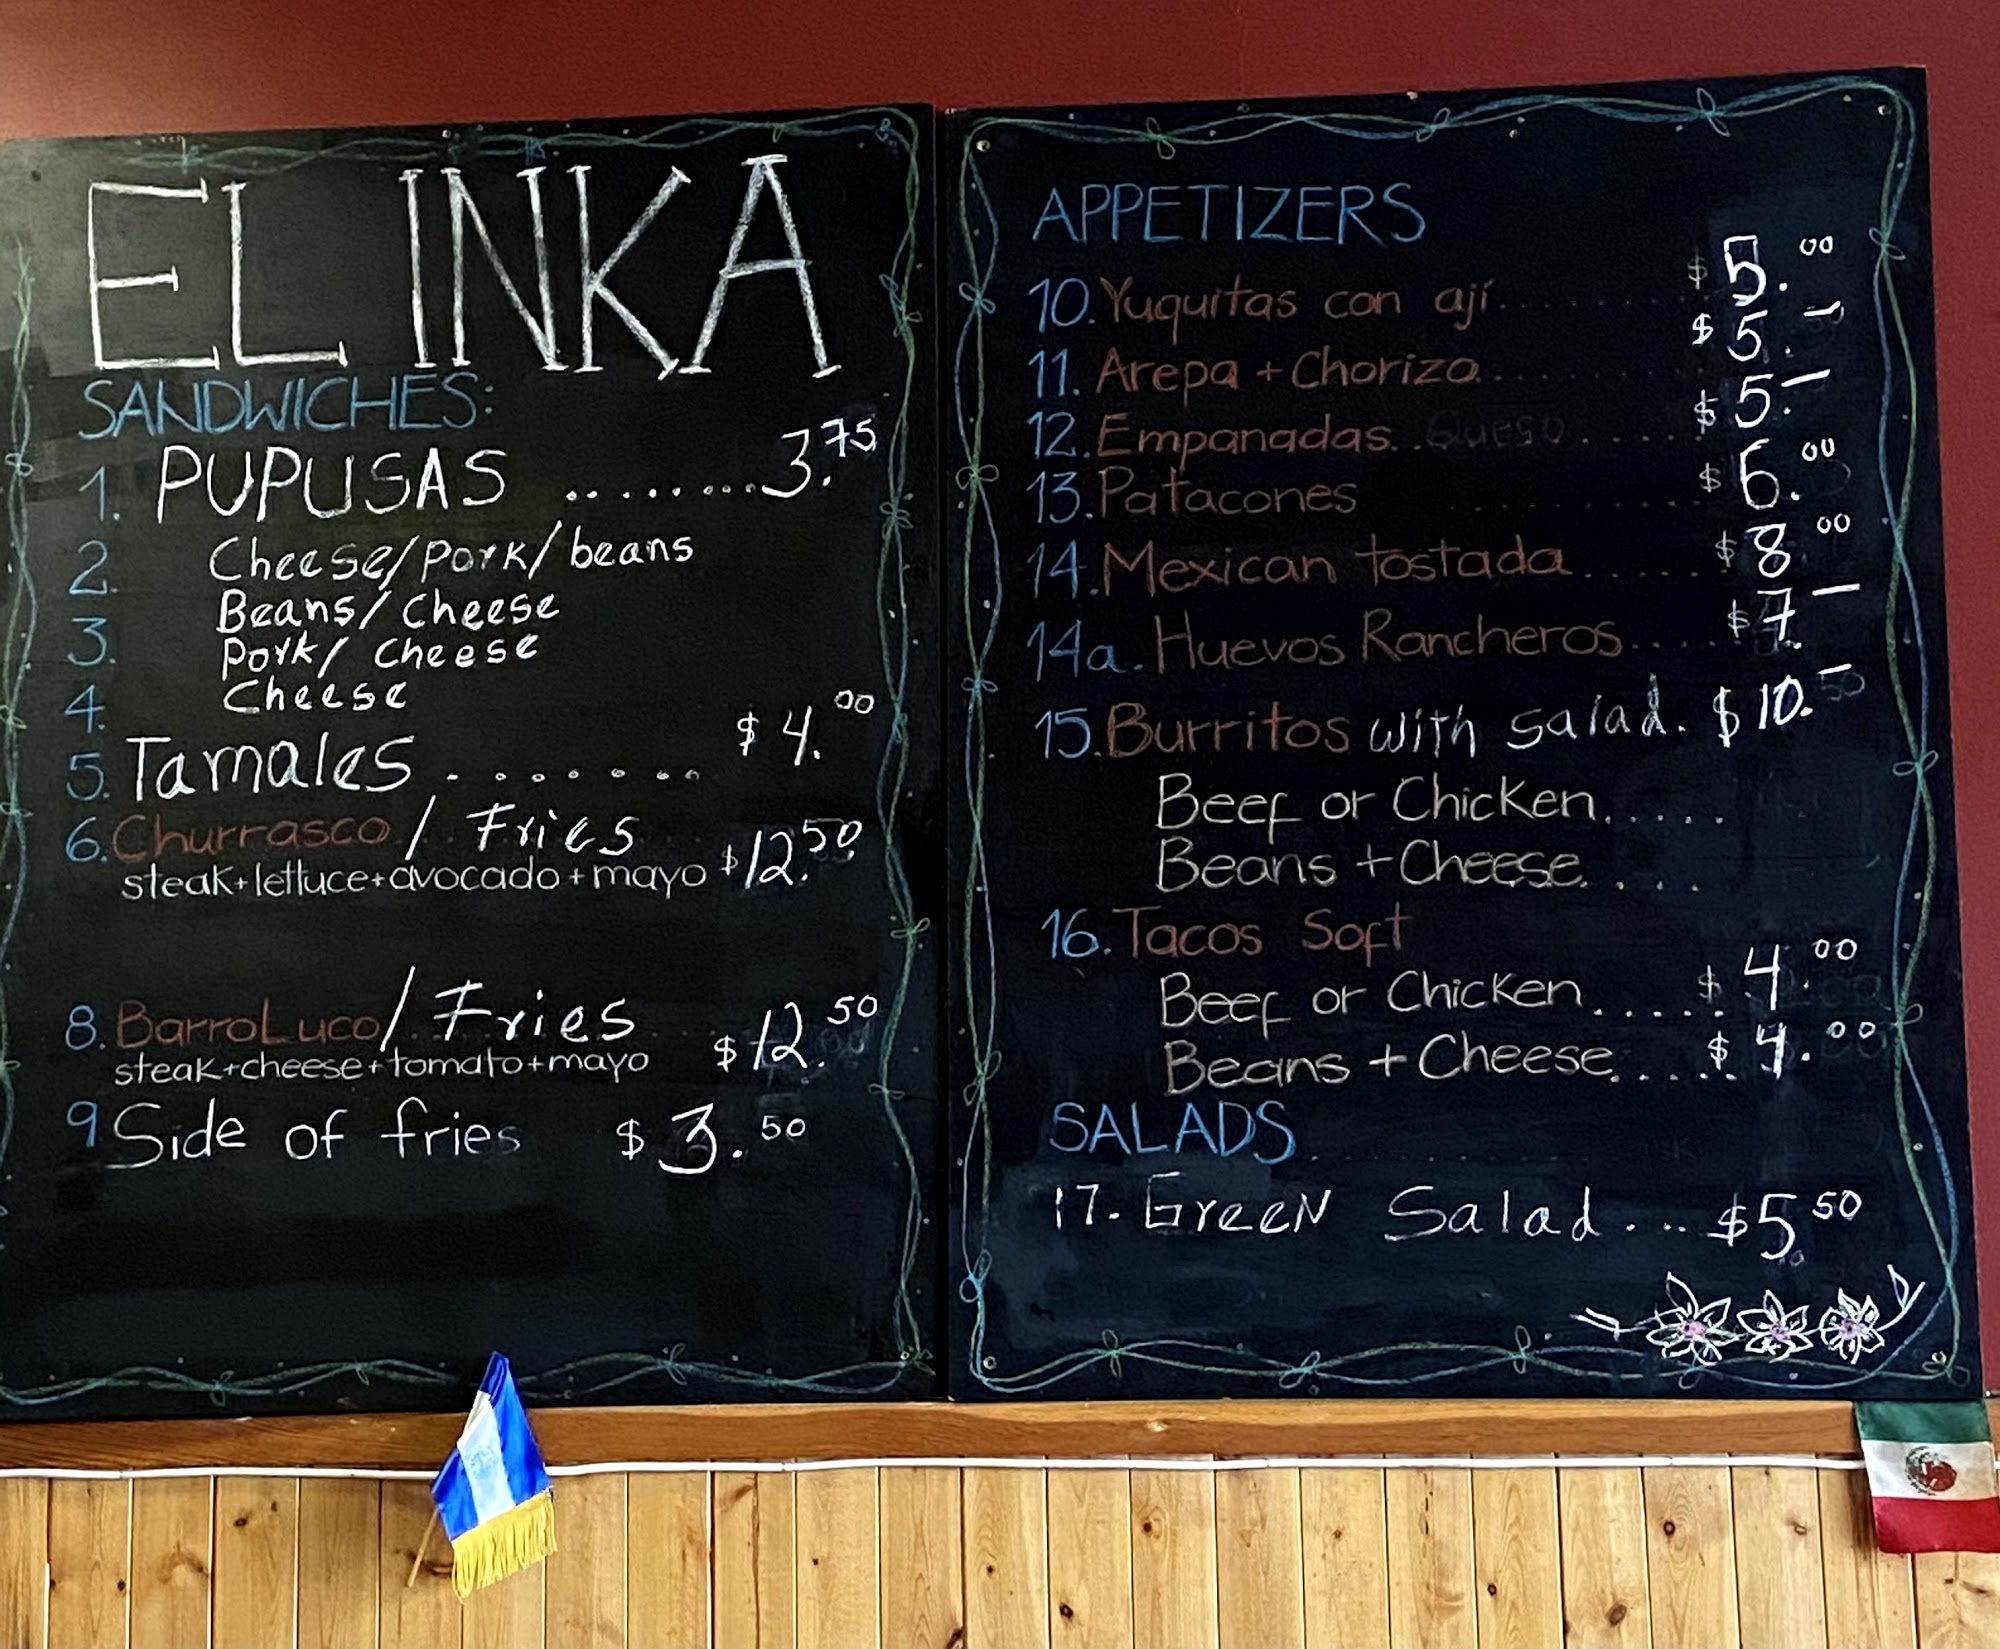 EL INKA
SANDWICHES:
1. PUPUSAS ........3.75
2. Cheese/pork/beans
3. Beans/cheese
Pork/cheese
4. Cheese
5. Tamales ....... $4.00
6. Churrasco / Fries
steak+lettuce+avocado+mayo $12.50
8. BarroLuco/Fries
steak+cheese+tomato+mayo $12.50
9 Side of fries $3.50
APPETIZERS
10. Yuquitas con ají........ $5.00
11. Arepa + Chorizo........ $5.—
12. Empanadas..Queso..... $5.—
13. Patacones ....... $6.00
14. Mexican tostada...... $8.00
14a. Huevos Rancheros.... $7.—
15. Burritos with salad. $10.—
Beef or Chicken.....
Beans + Cheese....
16. Tacos Soft
Beef or Chicken..... $4.00
Beans + Cheese..... $4.00
SALADS
17. GreeN Salad.... $5.50